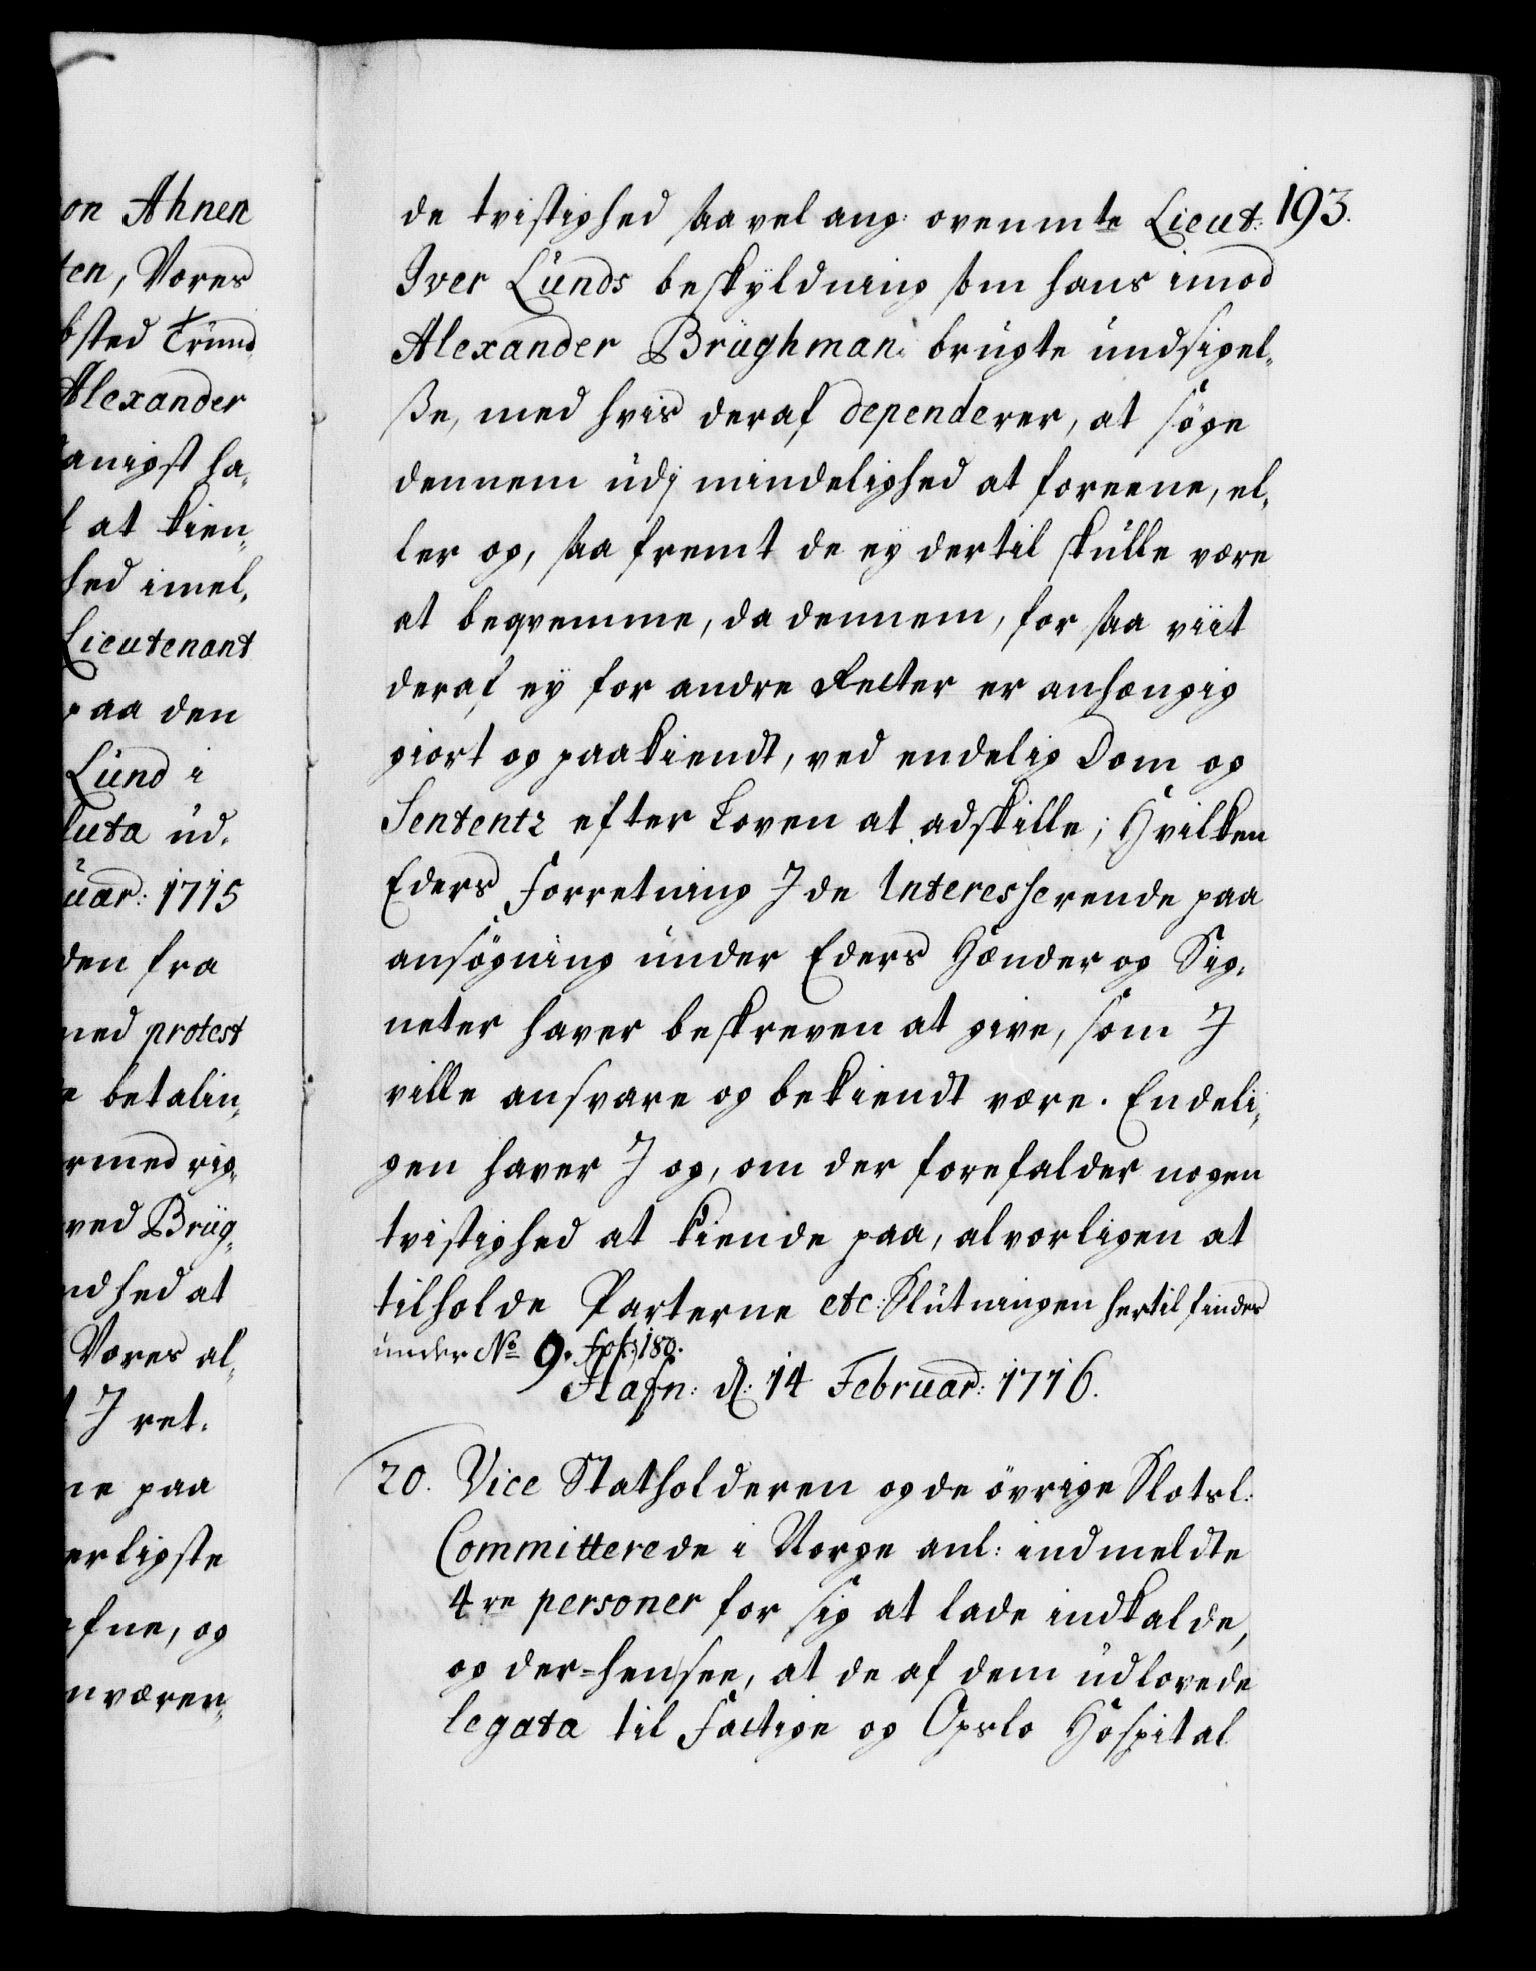 on Ahnen
ten, Vores
bsted Trund
Alexander
danigst ha,
l at kien,
hed imel,
Lieutenant
paa den
Lund i
luta ud,
uar: 1715
den fra
med protest
e betalin,
rmed rig,
ved Brüg,
ndhed at
Vores al,
t I ret,
ne paa
erligste
fne, og
nværen,
193.
de tvistighed saavel ang: ovenmte Lieut:
Iver Lunds beskyldning som hans imod
Alexander Brüghman brugte undsigel,
ße, med hvis deraf dependerer, at søge
dennem udj mindelighed at foreene, el,
ler og, saa fremt de ey dertil skulle være
at beqvemme, da dennem, for saa viit
deraf ey for andre Retter er anhængig
giort og paakiendt, ved endelig Dom og
Sententz efter Loven at adskille; Hvilken
Eders Forretning I de Interesserende paa
ansøgning under Eders Hænder og Sig,
neter haver beskreven at give, som I
ville ansvare og bekiendt være. Endeli,
gen haver I og, om der forefalder nogen
tvistighed at kiende paa, alvorligen at
tilholde Parterne etc: Slutningen hertil findes
under No 9. fol: 180.
Hafn: d: 14 Februar: 1716.
20. Vice Statholderen og de övrige Slotsl:
Committerede i Norge anl: indmeldte
4re personer for sig at lade indkalde,
og der-hensee, at de af dem udlovede
legata til Fattige og Opslo Hospital